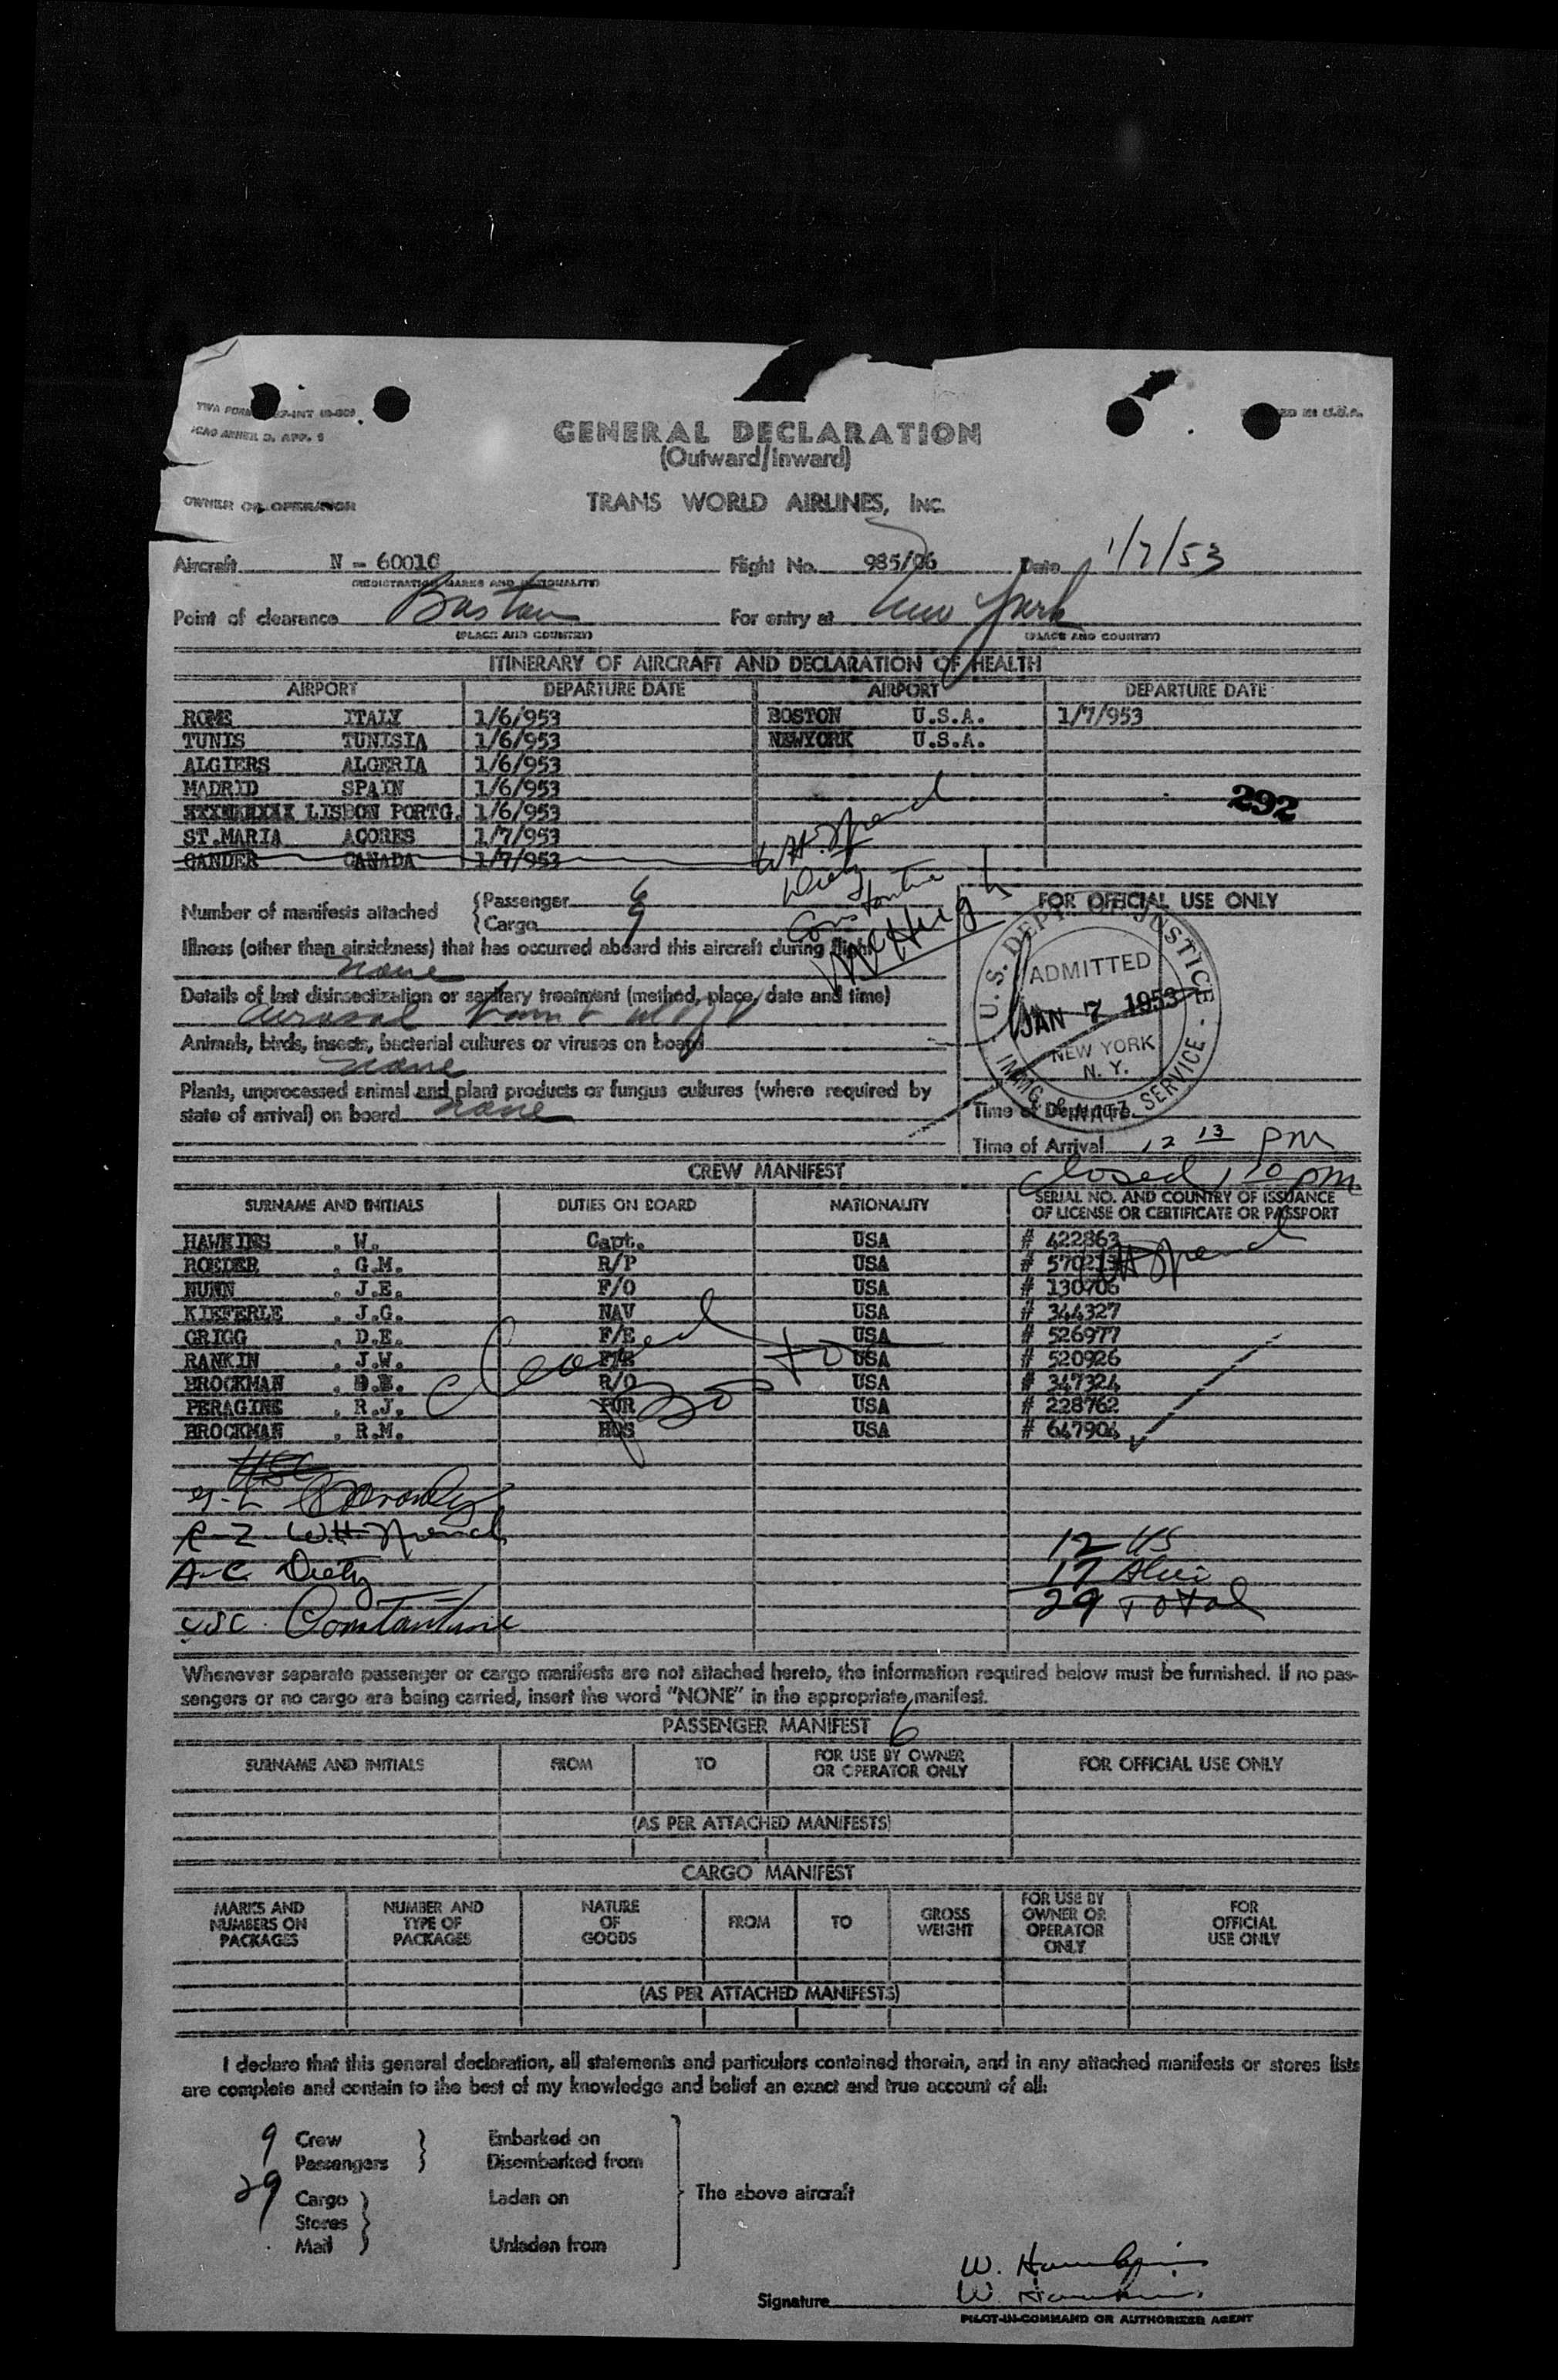 ICAO ANNEX 9, APP. 1
GENERAL DECLARATION
(Outward/Inward)
OWNER OR OPERATOR TRANS WORLD AIRLINES, INC.
Aircraft N - 60010 Flight No. 985/06 Date 1/7/53
(REGISTRATION MARKS AND NATIONALITY)
Point of clearance Boston For entry at New York
(PLACE AND COUNTRY) (PLACE AND COUNTRY)
ITINERARY OF AIRCRAFT AND DECLARATION OF HEALTH
AIRPORT DEPARTURE DATE AIRPORT DEPARTURE DATE
ROME ITALY 1/6/953 BOSTON U.S.A. 1/7/953
TUNIS TUNISIA 1/6/953 NEWYORK U.S.A.
ALGIERS ALGERIA 1/6/953
MADRID SPAIN 1/6/953 292
LISBON PORTG. 1/6/953
ST.MARIA ACORES 1/7/953
GANDER CANADA 1/7/953
W.H. Spend
Diety
Constantine
McHugh
Number of manifests attached Passenger 6
Cargo 9
FOR OFFICIAL USE ONLY
Illness (other than airsickness) that has occurred aboard this aircraft during flight
none
Details of last disinsectization or sanitary treatment (method, place, date and time)
Aerosol bomb
Animals, birds, insects, bacterial cultures or viruses on board
none
Plants, unprocessed animal and plant products or fungus cultures (where required by
state of arrival) on board none
U.S. DEPT. OF JUSTICE
ADMITTED
JAN 7 1953
NEW YORK
N. Y.
IMMIG. & NATZ. SERVICE
Time of Departure
Time of Arrival 12 13 PM
Closed 1 20 pm
CREW MANIFEST
SURNAME AND INITIALS DUTIES ON BOARD NATIONALITY SERIAL NO. AND COUNTRY OF ISSUANCE
OF LICENSE OR CERTIFICATE OR PASSPORT
HAWKINS . W. Capt. USA # 422863
ROEDER . G.M. R/P USA # 57021
NUNN . J.E. F/O USA # 130706
KIEFERLE . J.G. NAV USA # 344327
GRIGG . D.E. F/E USA # 526977
RANKIN . J.W. F/E USA # 520926
BROCKMAN . D.E. R/O USA # 347324
PERAGINE . R.J. PUR USA # 228762
BROCKMAN . R.M. HOS USA # 647904
Closed to
USC
R-Z W.H. Spend
A-C Diety
USC. Constantine
12 US
17 Alien
29 Total
Whenever separate passenger or cargo manifests are not attached hereto, the information required below must be furnished. If no pas-
sengers or no cargo are being carried, insert the word "NONE" in the appropriate manifest.
PASSENGER MANIFEST 6
SURNAME AND INITIALS FROM TO FOR USE BY OWNER
OR OPERATOR ONLY FOR OFFICIAL USE ONLY
(AS PER ATTACHED MANIFESTS)
CARGO MANIFEST
MARKS AND
NUMBERS ON
PACKAGES
NUMBER AND
TYPE OF
PACKAGES
NATURE
OF
GOODS
FROM
TO
GROSS
WEIGHT
FOR USE BY
OWNER OR
OPERATOR
ONLY
FOR
OFFICIAL
USE ONLY
(AS PER ATTACHED MANIFESTS)
I declare that this general declaration, all statements and particulars contained therein, and in any attached manifests or stores lists
are complete and contain to the best of my knowledge and belief an exact and true account of all:
9 Crew Embarked on
29 Passengers Disembarked from
Cargo Laden on The above aircraft
Stores
Mail Unladen from
W. Hawkins
Signature W Hawkins
PILOT-IN-COMMAND OR AUTHORIZED AGENT